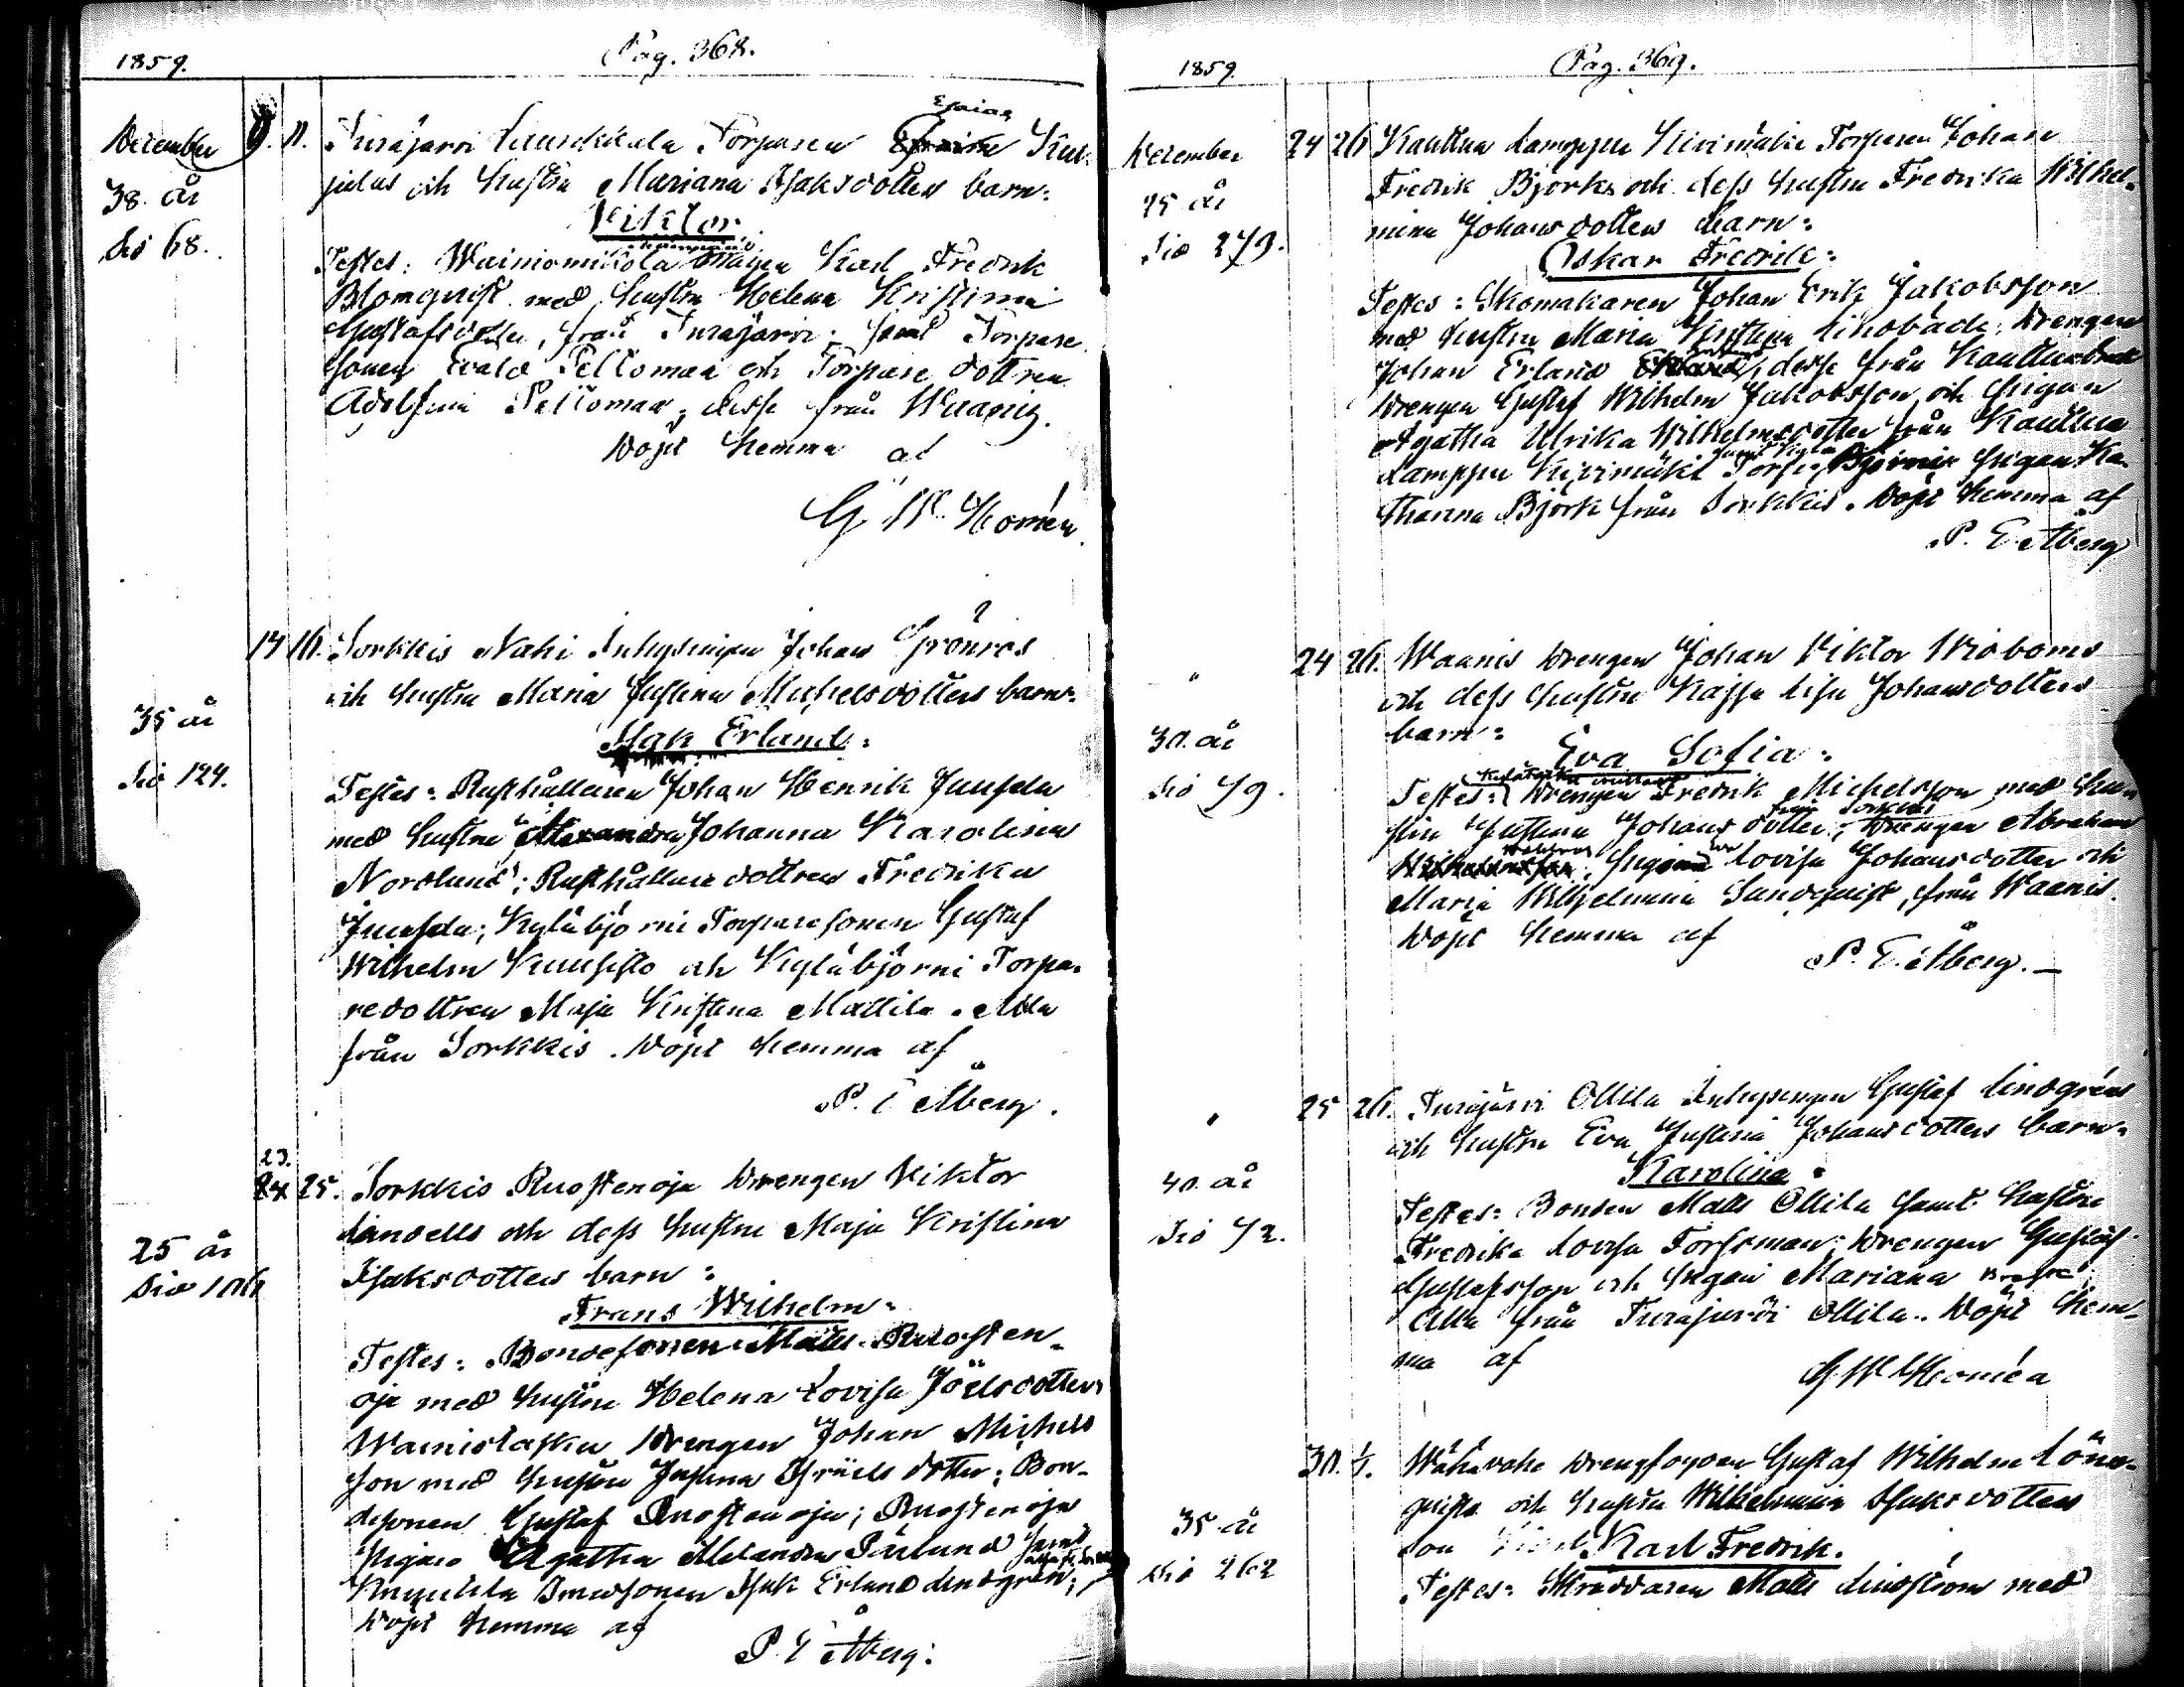 1859.
Pag. 368.
December 9. 11. Turajärvi Torparen Esaias
julas och hustru Mariana Isaksdotters barn:
38 år
Viktor.
Sid 68.
Testes: Wainiomikola Karl Fredrik
Blomqvist med hustru Helena Kristina
Gustafsdotter, från Turajärvi; samt Torpare
sonen Evald Peltomaa och Torpare dottren
Adolfina Peltomaa, desse från Waanis.
Döpt hemma af
G W Homén.
14 16. Sorkkis Naki Inhysingen Johan Grönros
och hustru Maria Justina Michelsdotters barn:
35 år
Isak Erland:
Sid 124.
Testes: Rusthållaren Johan Henrik Juusela
med hustru Johanna Karolina
Nordlund; Rusthållare dottren Fredrika
Juusela; Kyläbjörni Torparesonen Gustaf
Wilhelm Kuusisto och Kyläbjörni Torpa-
redottren Maja Kristina Mattila. Alla
från Sorkkis. Döpt hemma af
P. E Åberg.
23.
24 25. Sorkkis Ruostenoja Drengen Viktor
Landells och dess hustru Maja Kristina
25 år
Isaksdotters barn:
Sid 106
Frans Wilhelm:
Testes: Bondesonen Matts Ruosten-
oja med hustru Helena Lovisa Joëlsdotter;
Drengen Johan Michels
son med hustru Justina Isriels dotter; Bon-
desonen Gustaf Ruostenoja; Ruostenoja
Pigan Agatha Alexandra Pärlund samt
Isak Erland Lindgrén;
Döpt hemma af
P. E Åberg:
1859.
Pag. 369.
December 24 26 Kauttua Lamppu Kivimäki Torparen Johan
Fredrik Björks och dess hustru Fredrika Wilhel-
25 år
mina Johansdotters barn:
Sid 279.
Oskar Fredrik:
Testes: Skomakaren Johan Erik Jakobsson
med hustru Maria Kristina Drengen
Johan Erland desse från Kauttua
Drengen Gustaf Wilhelm Jakobsson och Pigan
Agatha Ulrika Wilhelmsdotter från Kauttua
Lamppu Kivimäki Torp; Pigan Ka-
tharina Björk från Sorkkis. Döpt hemma af
P. E. Åberg
" 24 26. Waanis Drengen Johan Viktor Widboms
och dess hustru Kajsa Lisa Johansdotters
30 år
barn:
Eva Sofia:
Sid 79.
Testes: Drengen Fredrik Michelsson med hu-
stru Justina Johansdotter, från Sorkkis; Drengen Abraham
Lovisa Johansdotter och
Maria Wilhelmina Sandqvist, från Waanis.
Döpt hemma af
P. E. Åberg.
" 25 26. Turajärvi Ollila Inhysingen Gustaf Lindgréns
och hustru Eva Justina Johansdotters barn:
40 år
Karolina:
Sid 72.
Testes: Bonden Matts Ollila samt hustru
Fredrika Lovisa Forsman; Drengen Gustaf
Gustafsson och Pigan Mariana
Alla från Turajärvi Ollila. Döpt hem-
ma af
G W Homén
30. 1/1. Wähävahe Gustaf Wilhelm Lönn-
qvists och hustru Wilhelmina Isaksdotters
35 år
son Karl Fredrik.
Sid 262
Testes: Skräddaren Matts Lindström med